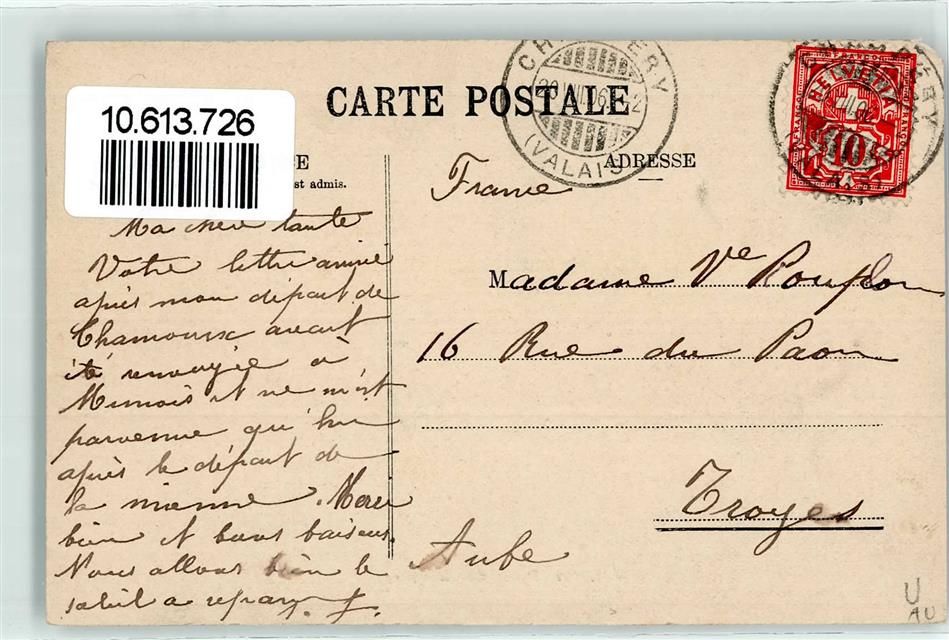 10.613.726
CARTE POSTALE
CH ERY
(VALAIS)
HELVETIA
10
FRANCO
E
st admis.
ADRESSE
France
Ma chère tante
Votre lettre arrivée
après mon départ de
Chamounix avait
été renvoyée à
et ne m'est
parvenue qu'hier
après le départ de
la mienne. Merci
bien et bons baisers.
Nous allons bien le
soleil a reparu.
Madame Vve Rouflon
16 Rue du Paon
Troyes
Aube
U
AU